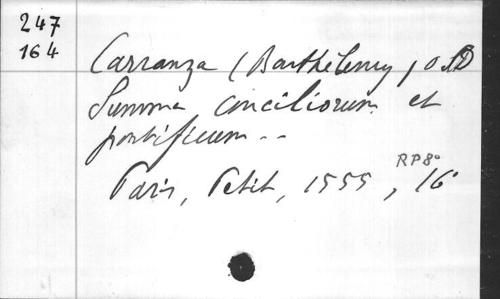 247
164
Carranza (Barthélemy, O.P.
Summa conciliorum et
pontificum --
Paris, Petit, 1555, 16°
RP8°